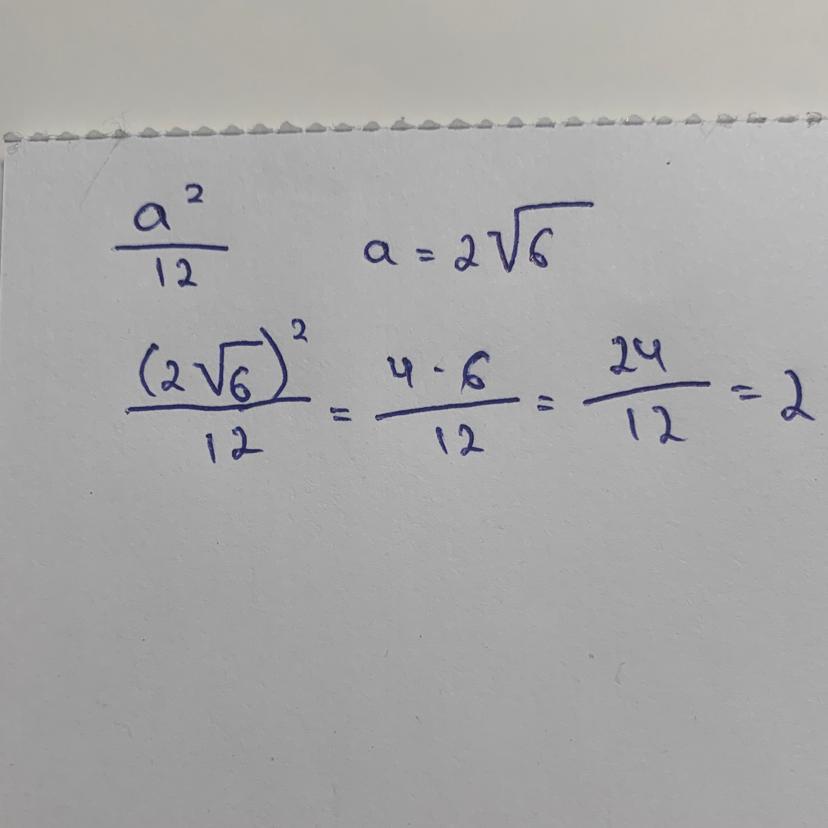 a²/12 a = 2√6
(2√6)²/12 = 4·6/12 = 24/12 = 2